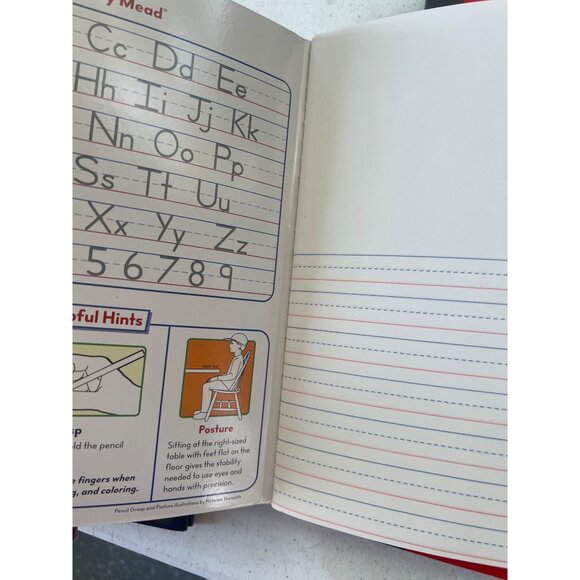 y Mead®
Cc Dd Ee
Hh Ii Jj Kk
Nn Oo Pp
Ss Tt Uu
Xx Yy Zz
5 6 7 8 9
pful Hints
sp
old the pencil
e fingers when
g, and coloring.
Posture
Sitting at the right-sized
table with feet flat on the
floor gives the stability
needed to use eyes and
hands with precision.
Pencil Grasp and Posture illustrations by Melanee Hurowitz